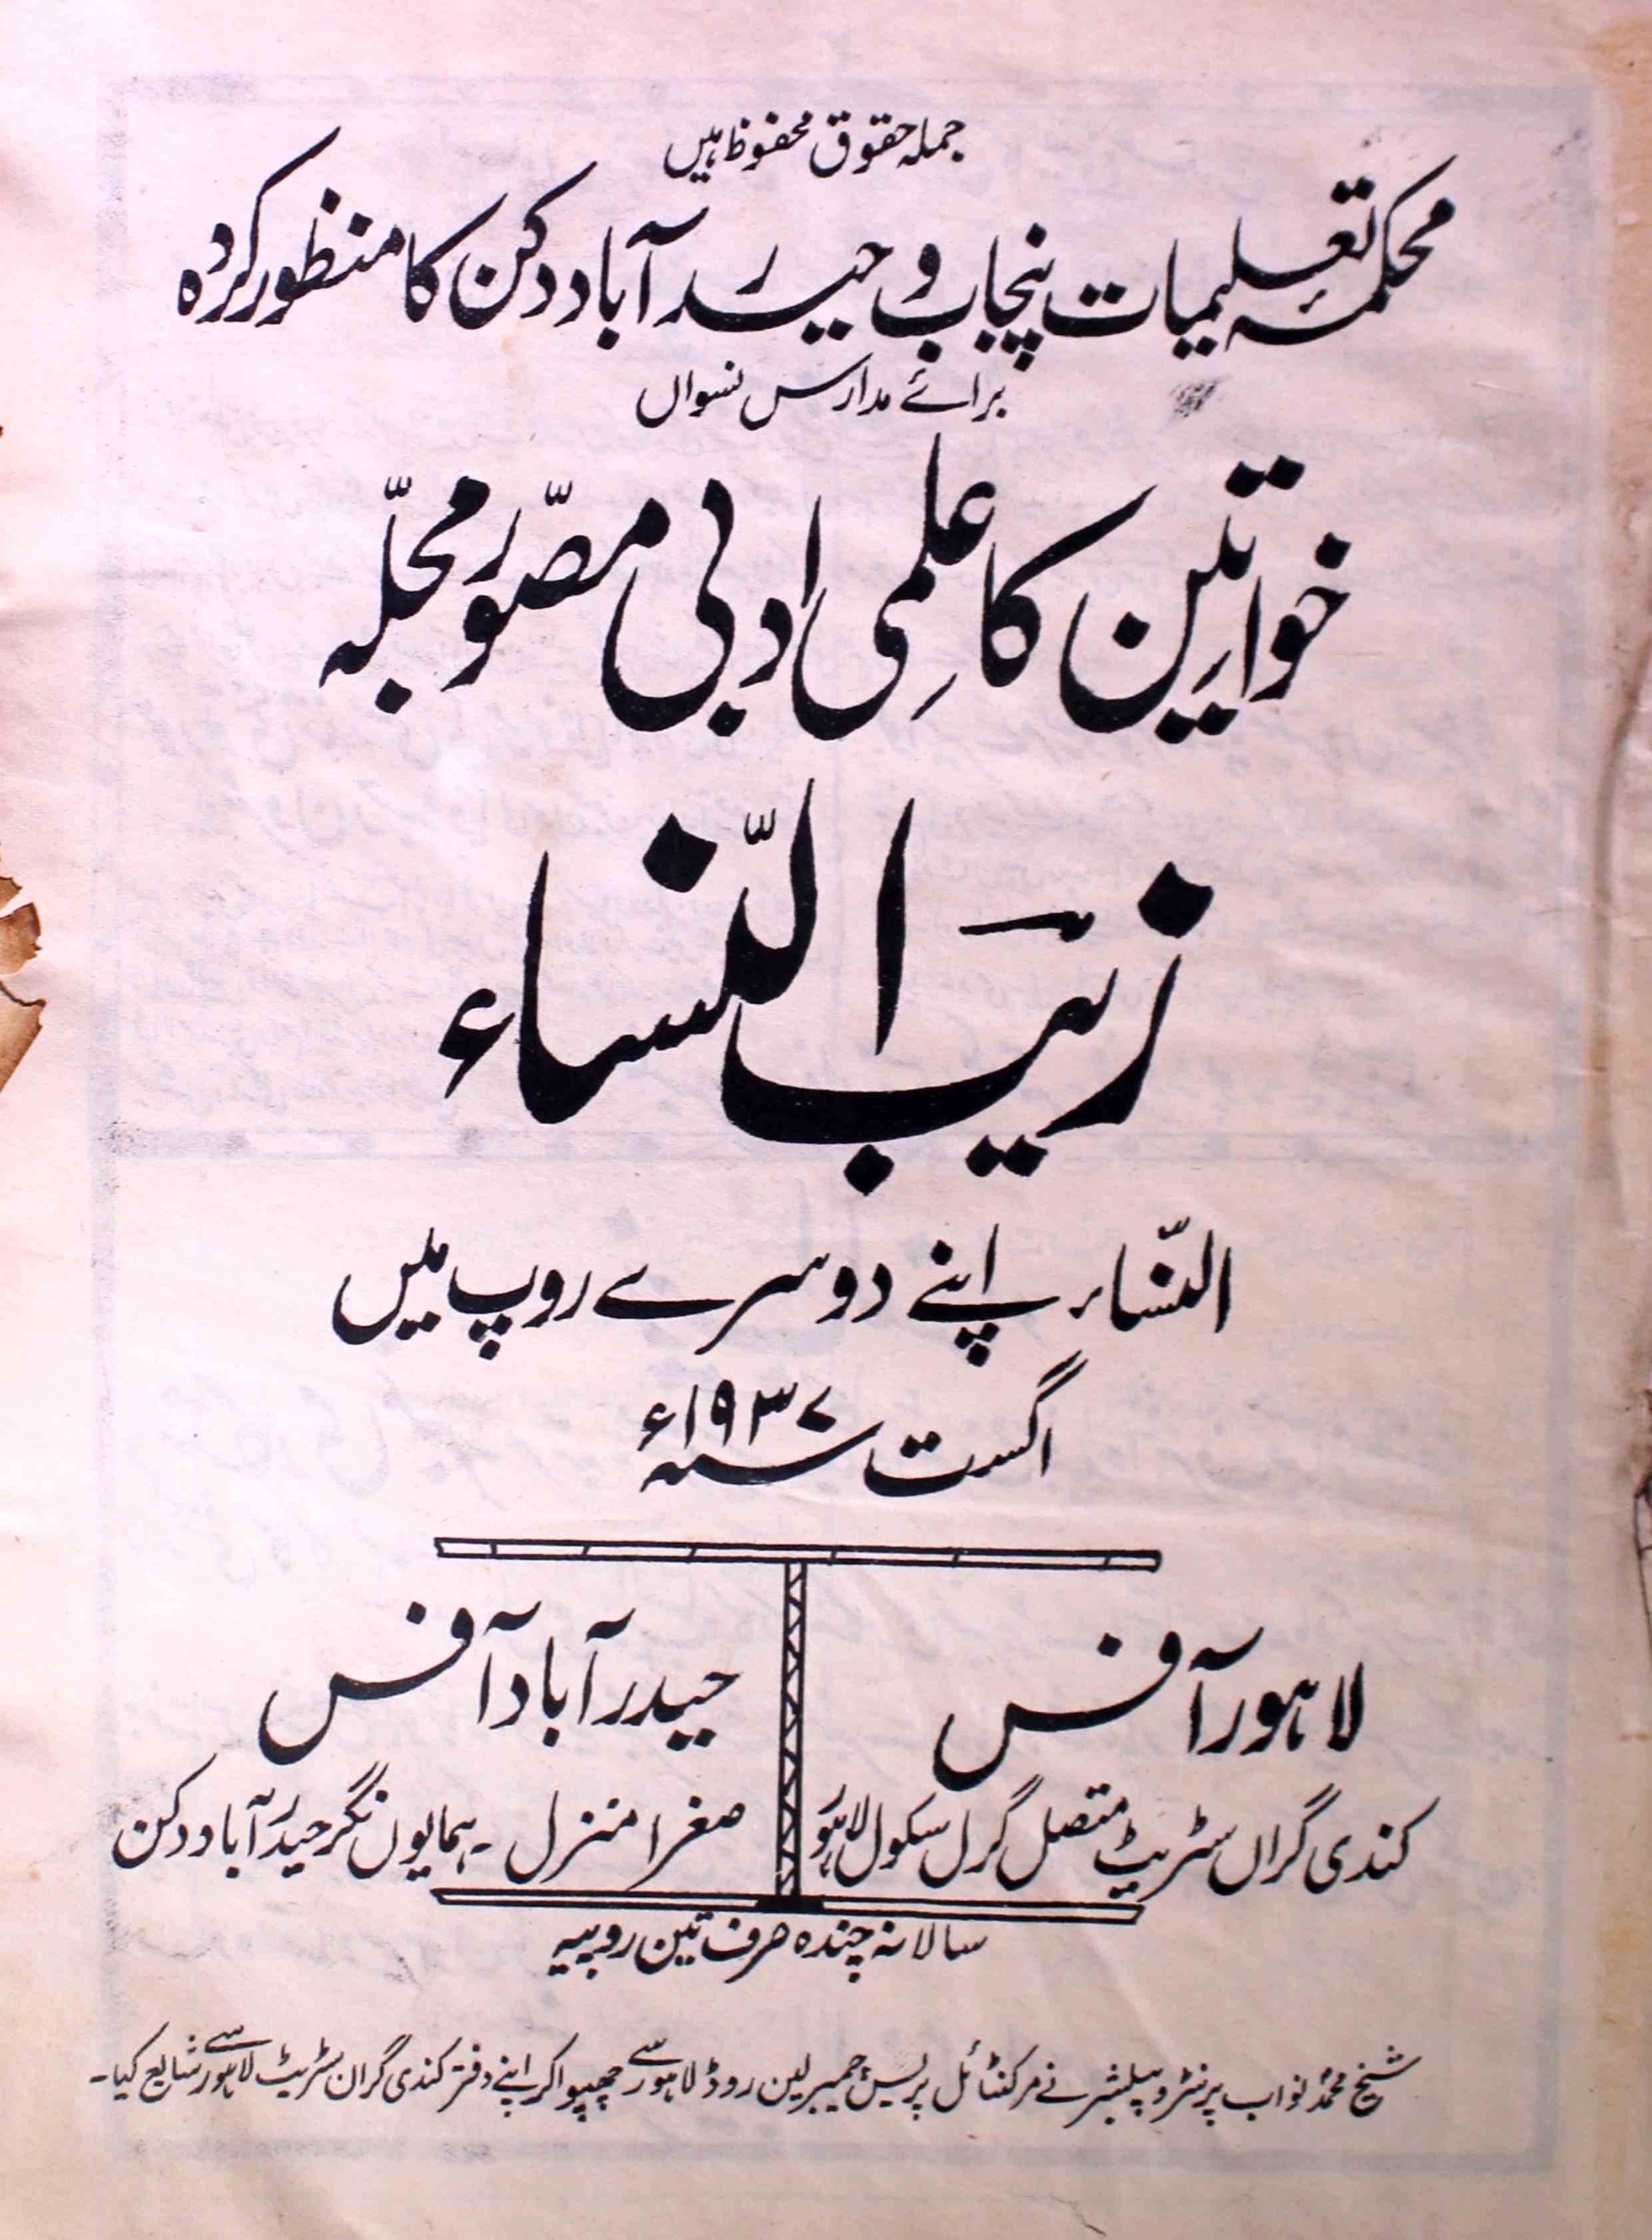 جملہ حقوق محفوظ ہیں
محکمۂ تعلیمات پنجاب و حیدرآباد دکن کا منظور کردہ
برائے مدارس نسواں
خواتین کا عِلمی ادبی مصوّر مجلّہ
زیبَ النّساء
النّساء اپنے دوسرے روپ میں
اگست سنہ ۱۹۳۷ء
لاہور آفس
کندی گراں سٹریٹ متصل گرل سکول لاہور
حیدرآباد آفس
صغرا منزل - ہمایوں نگر حیدرآباد دکن
سالانہ چندہ صرف تین روپیہ
شیخ محمد نواب پرنٹر و پبلشر نے مرکنٹائل پریس چیمبرلین روڈ لاہور سے چھپوا کر اپنے دفتر کندی گران سٹریٹ لاہور سے شایع کیا۔